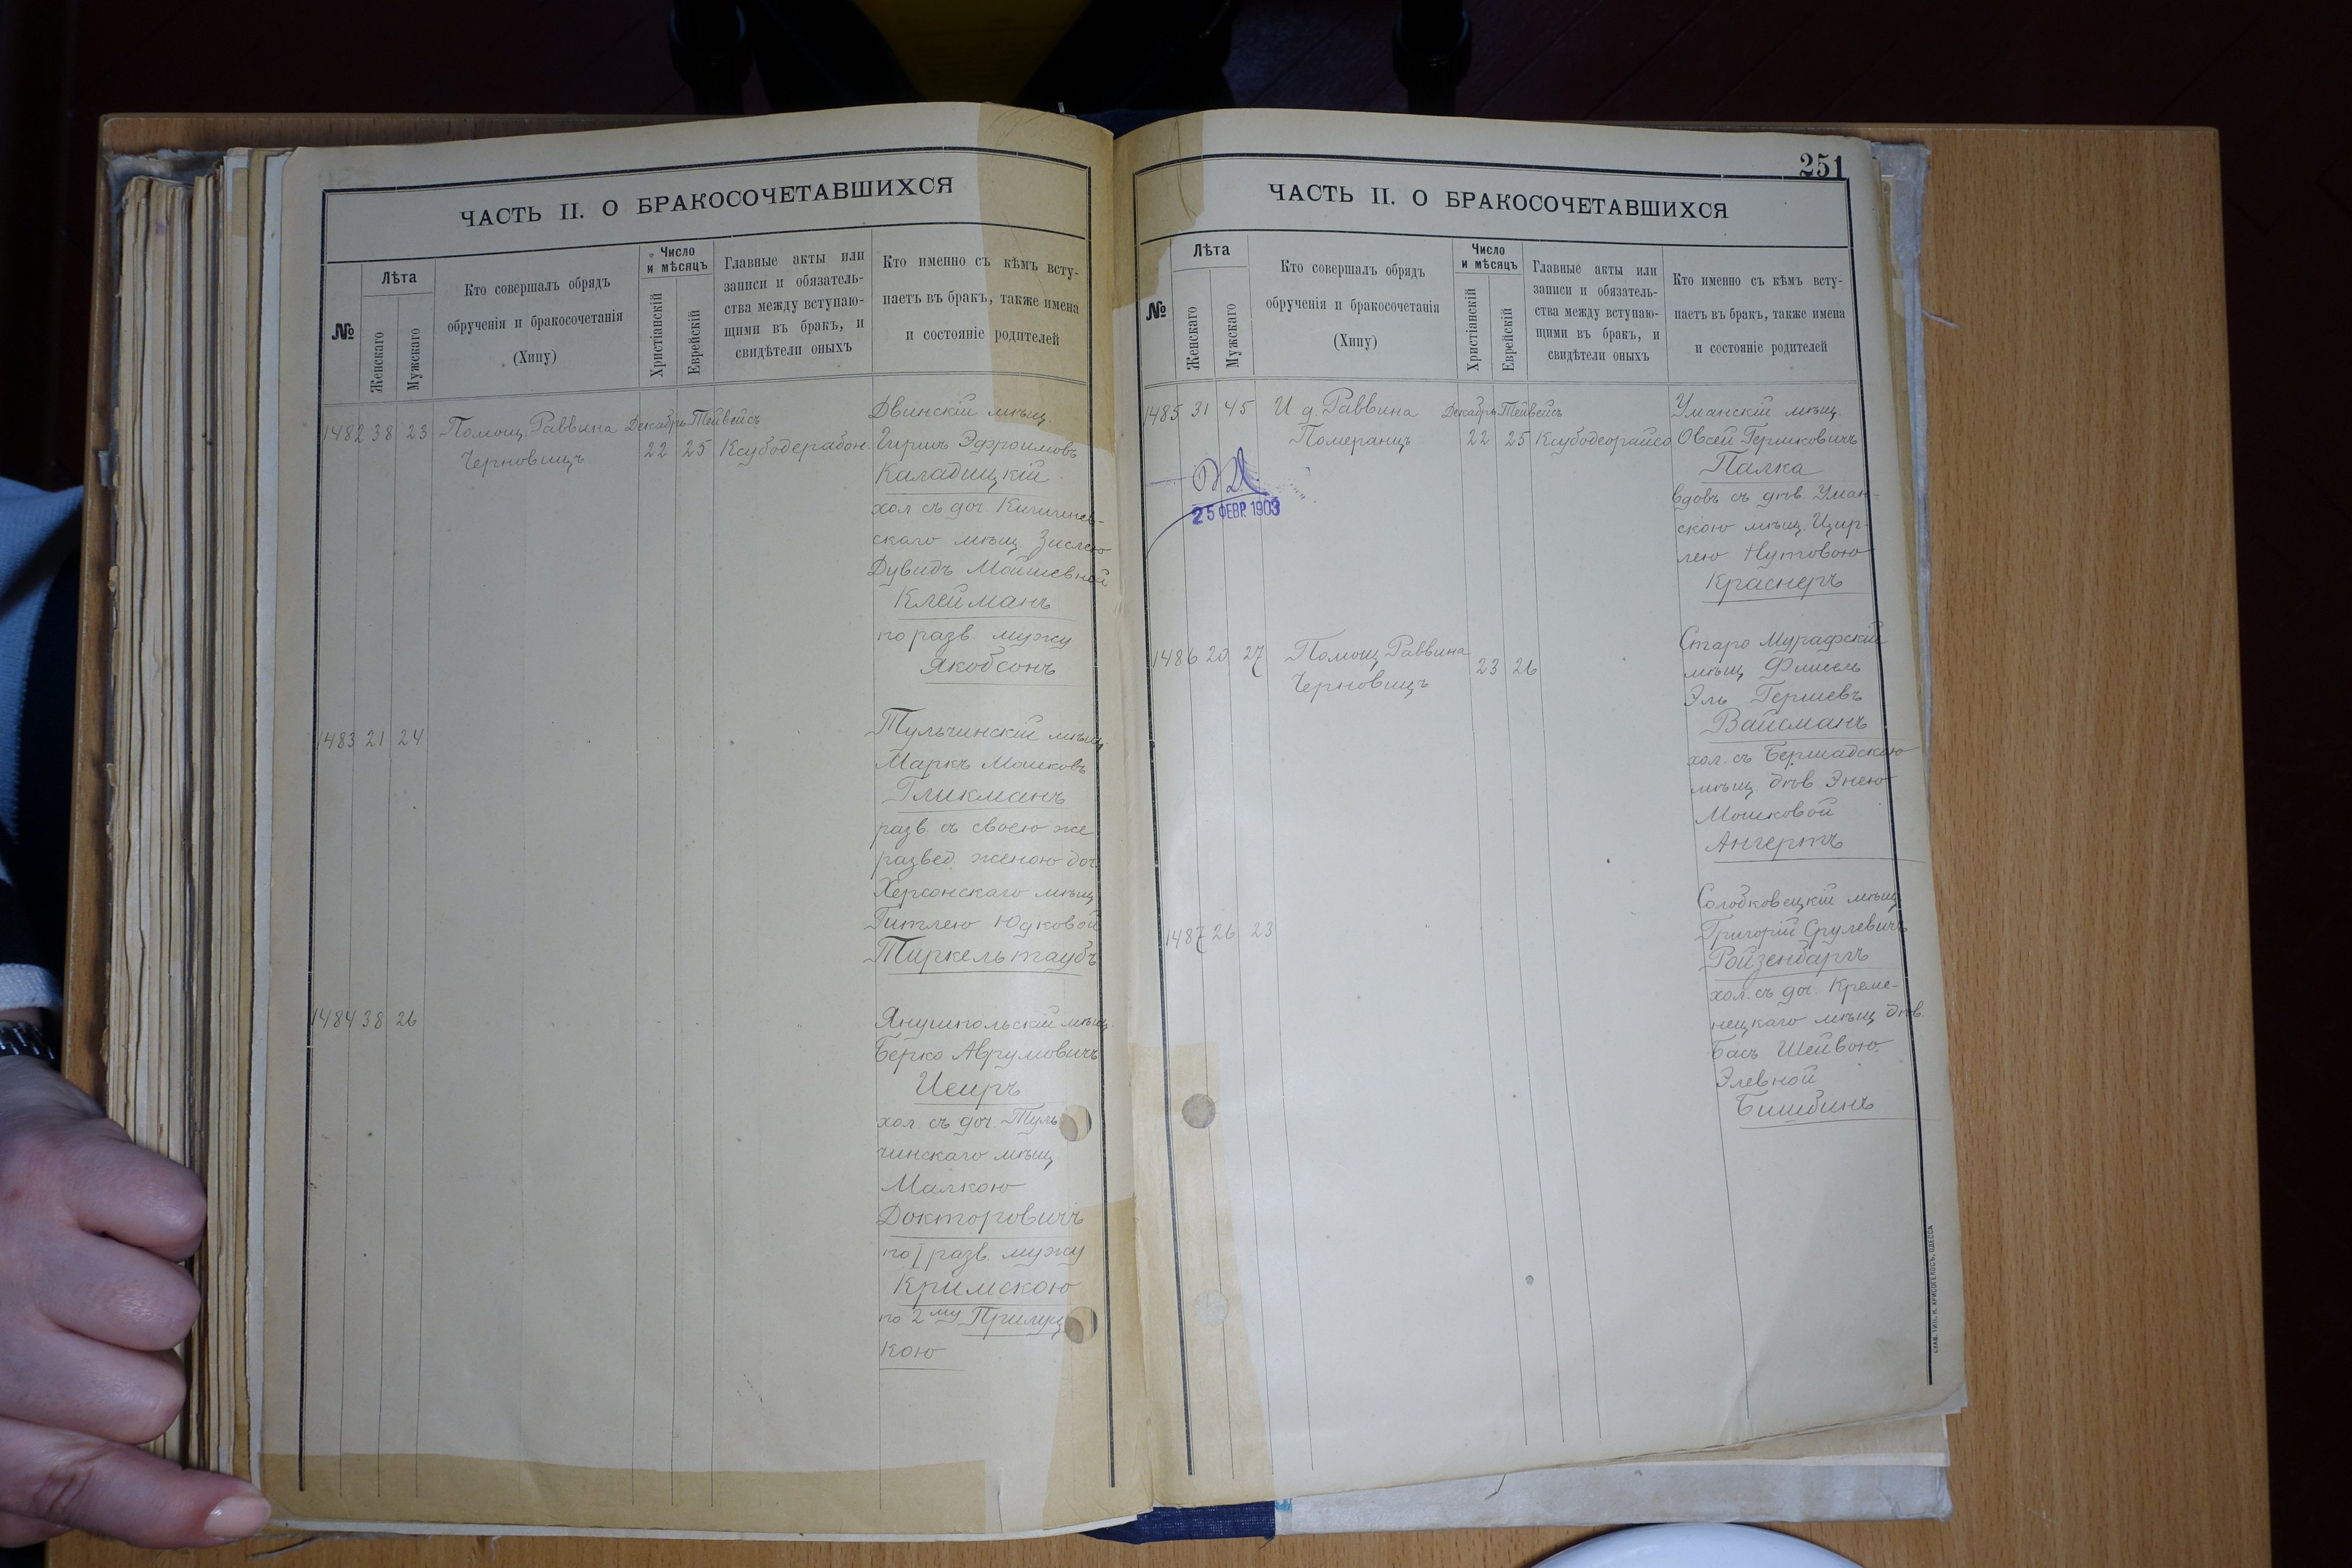 ЧАСТЬ II. О БРАКОСОЧЕТАВШИХСЯ
№
Лѣта
Женскаго
Мужскаго
Кто совершалъ обрядъ
обрученія и бракосочетанія
(Хипу)
Число
и мѣсяцъ
Христіанскій
Еврейскій
Главные акты или
записи и обязатель-
ства между вступаю-
щими въ бракъ, и
свидѣтели оныхъ
Кто именно съ кѣмъ всту-
паетъ въ бракъ, также имена
и состояніе родителей
1482 38 23
Помощ. Раввина
Черновицъ
Декабрь Тейвейсъ
22 25
Ксубодерабон.
Двинскій мѣщ.
Гиршъ Эфроимовъ
Каладицкій
хол съ доч. Кишинев-
скаго мѣщ. Зислею
Дувидъ Мошševной
Клейманъ
по разв. мужу
Якобсонъ
1483 21 24
Тульчинскій мѣщ.
Маркъ Мошковъ
Гликманъ
разв. съ своею же
развед. женою доч
Херсонскаго мѣщ
Гитлею Юдковой
Тиркельтаубъ
1484 38 26
Янушпольскій мѣщ.
Берко Аврумовичъ
хол. съ доч. Туль
чинскаго мѣщ
Малкою
Докторовичъ
по I разв. мужу
Кримскою
по 2му Прилуц
кою
251
ЧАСТЬ II. О БРАКОСОЧЕТАВШИХСЯ
№
Лѣта
Женскаго
Мужскаго
Кто совершалъ обрядъ
обрученія и бракосочетанія
(Хипу)
Число
и мѣсяцъ
Христіанскій
Еврейскій
Главные акты или
записи и обязатель-
ства между вступаю-
щими въ бракъ, и
свидѣтели оныхъ
Кто именно съ кѣмъ всту-
паетъ въ бракъ, также имена
и состояніе родителей
1485 31 45
И д. Раввина
Померанцъ
Декабрь Тейвейсъ
22 25
Ксубодеорайсо
25 ФЕВР. 1903
Уманскій мѣщ.
Овсей Гершковичъ
Палка
вдовъ съ дѣв. Уман-
скою мѣщ. Цир-
лею Нутовою
Краснеръ
1486 20 27
Помощ. Раввина
Черновицъ
23 26
Старо Мурафскій
мѣщ Фишель
Эль Гершевъ
Вайсманъ
хол. съ Бершадскою
мѣщ. дѣв Энею
Мошковой
Ангертъ
1487 26 23
Солобковецкій мѣщ
Григорій Срулевичъ
Ройзенбаргъ
хол. съ доч. Креме-
нецкаго мѣщ дѣв.
Бась Шейвою
Элевной
Бишбинъ
СЛАВ. ТИП. Н. ХРИСОГЕЛОСЪ, ОДЕССА